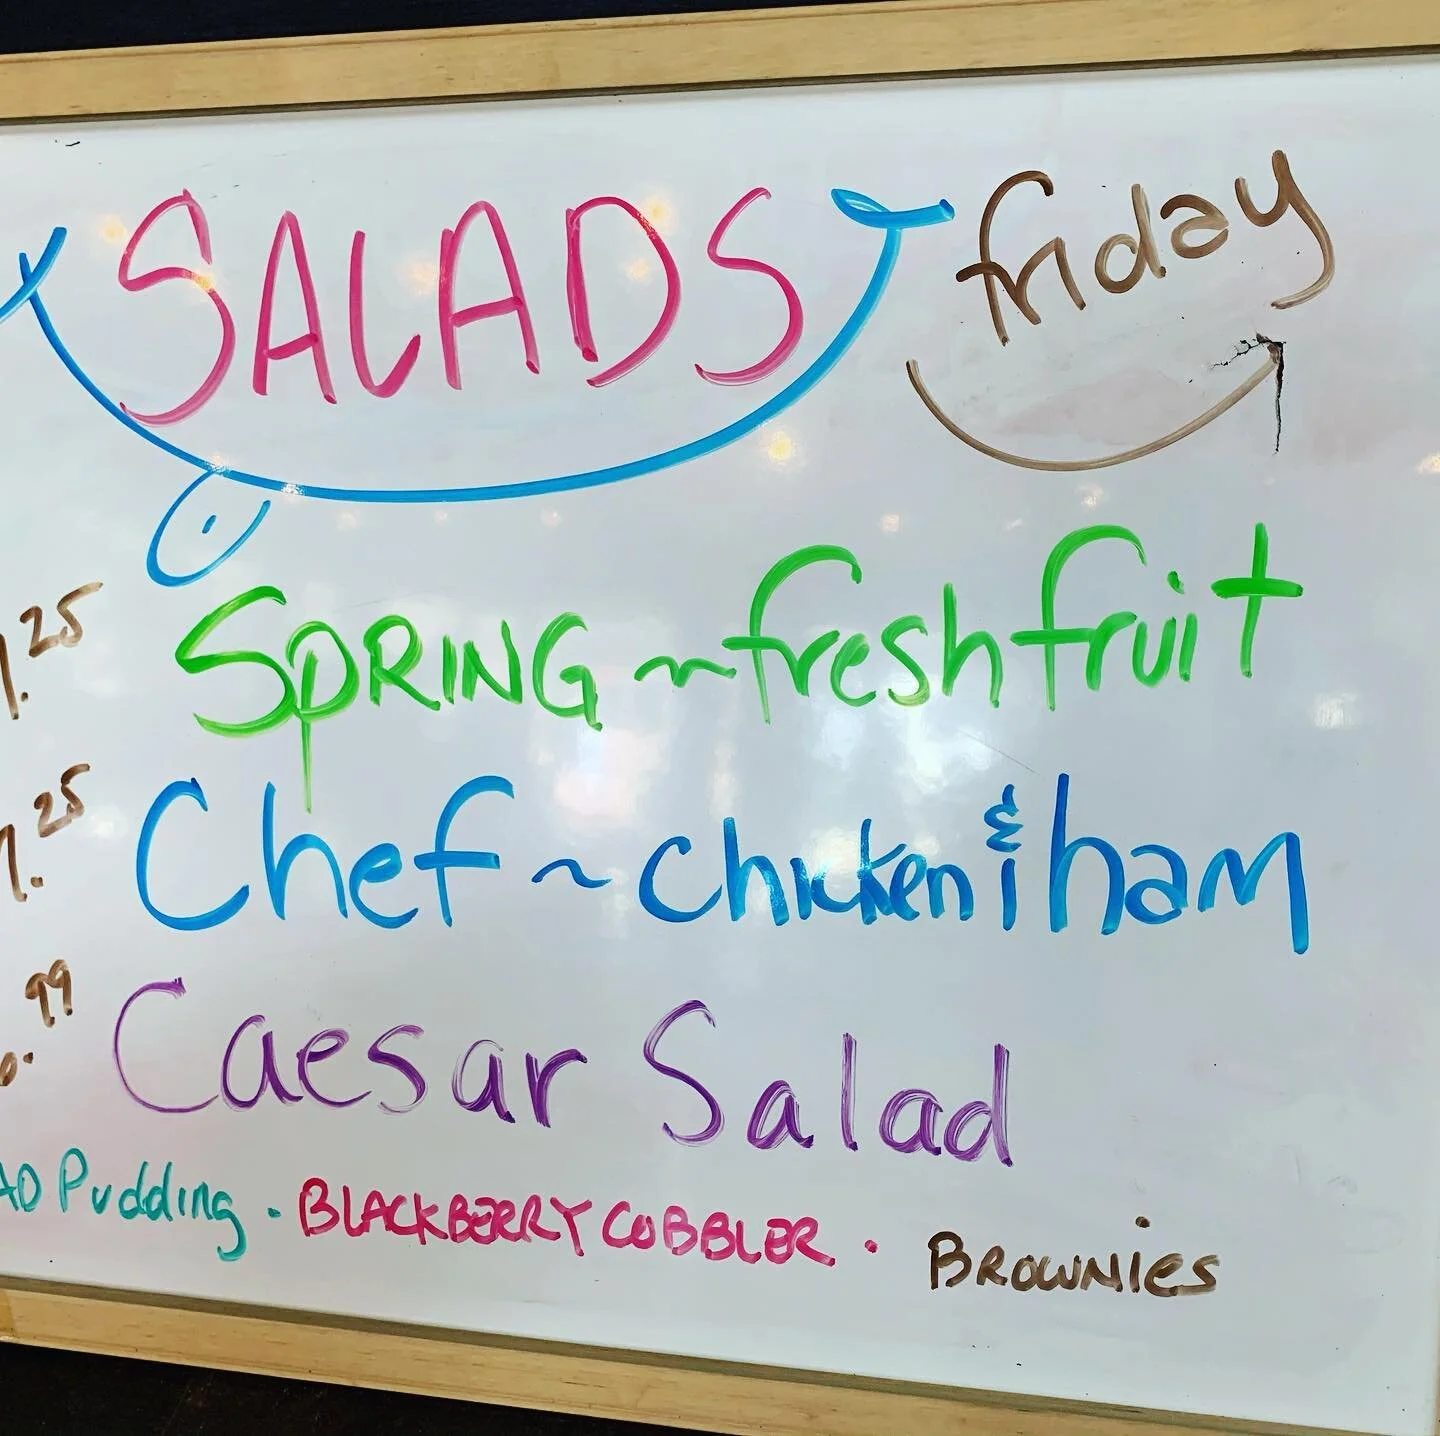 SALADS friday
.25 SPRING ~ fresh fruit
.25 Chef ~ chicken & ham
.99 Caesar Salad
Pudding · BLACKBERRY COBBLER · BROWNIES